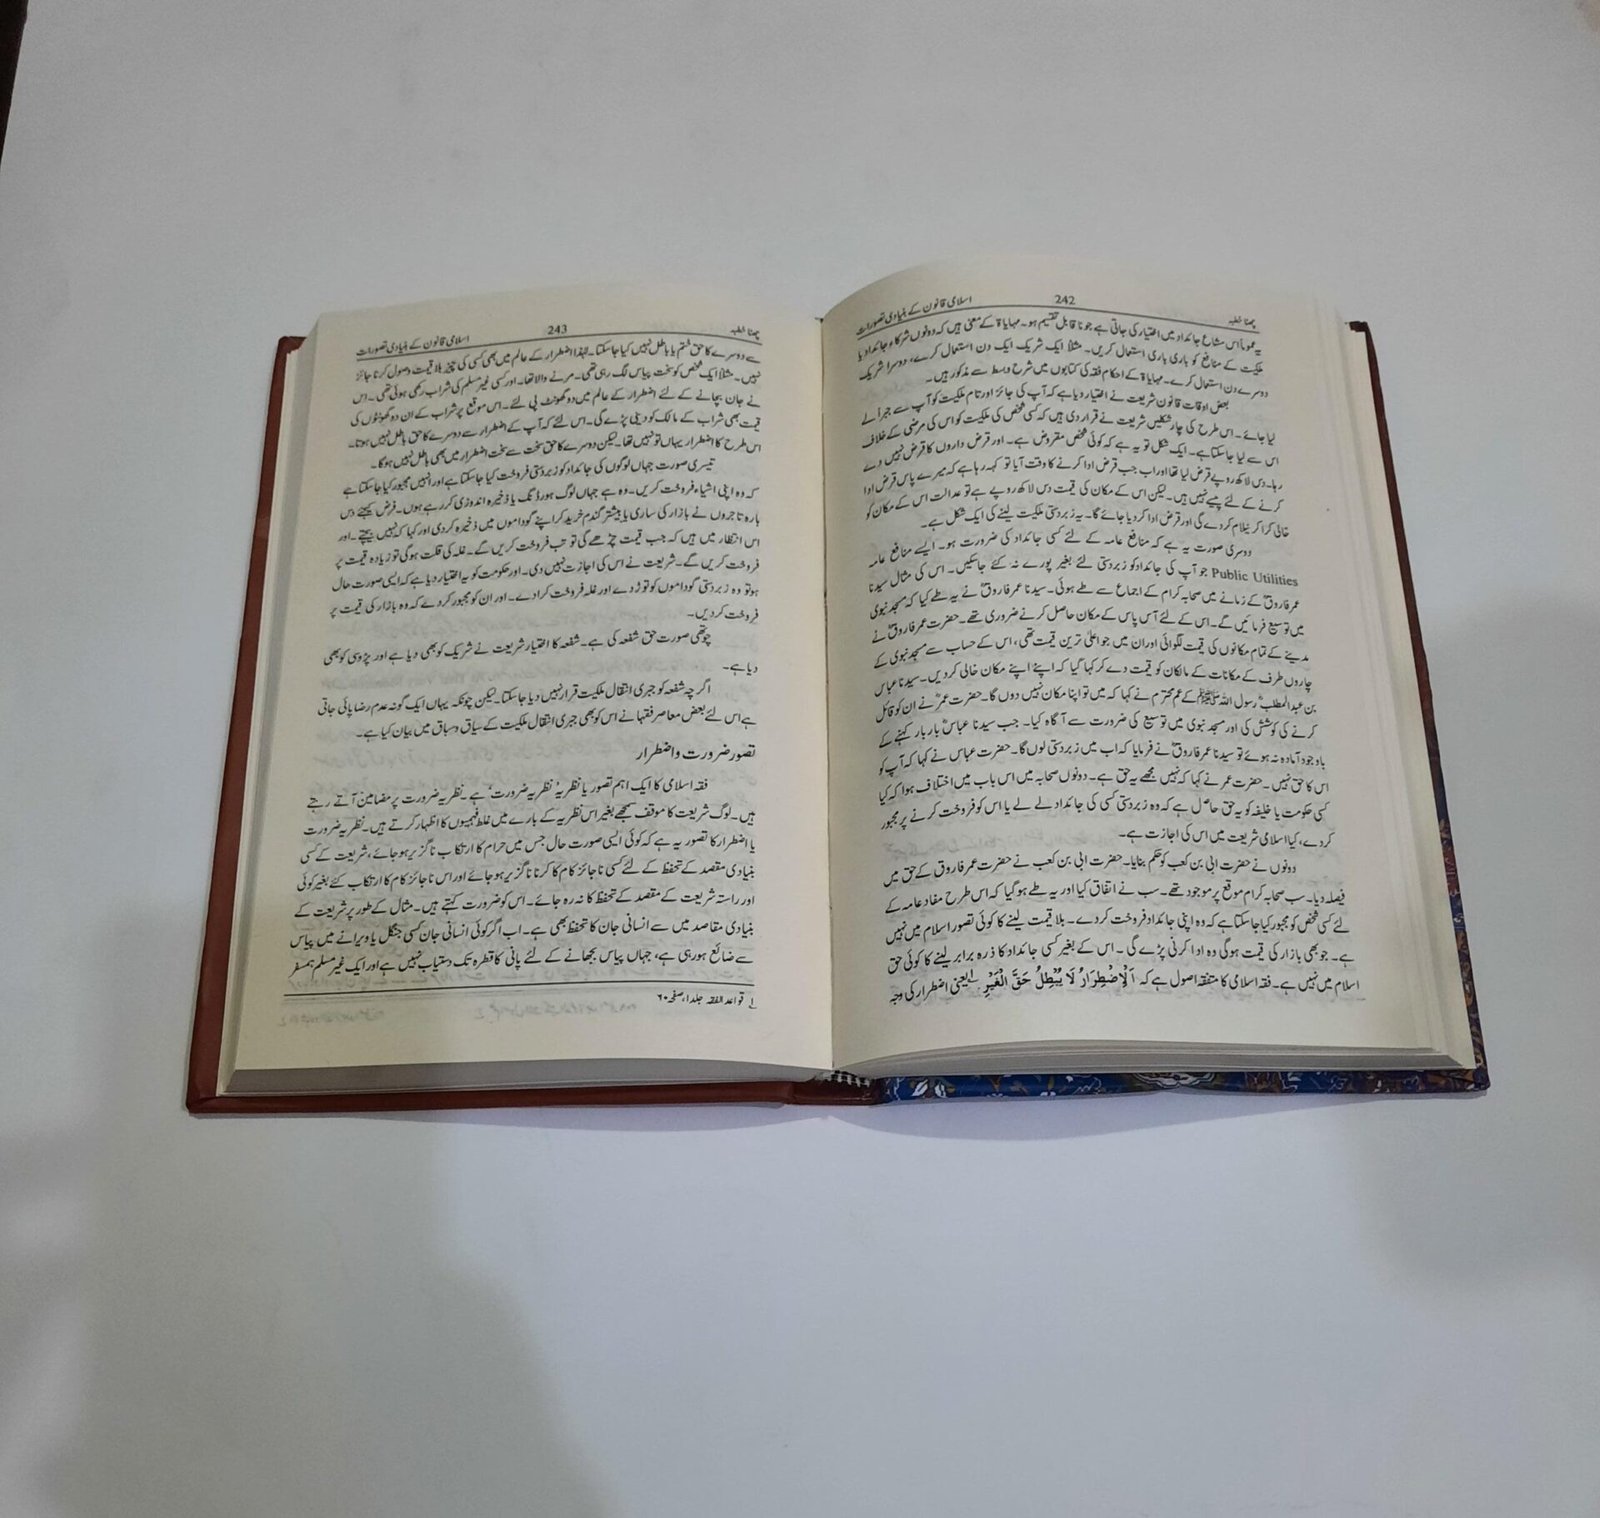 چھٹا خطبہ 242 اسلامی قانون کے بنیادی تصورات
یہ عموماً اس مشاع جائداد میں اختیار کی جاتی ہے جو ناقابل تقسیم ہو۔ مہایاۃ کے معنی ہیں کہ دونوں شرکاء جائداد یا
ملکیت کے منافع کو باری باری استعمال کریں۔ مثلاً ایک شریک ایک دن استعمال کرے، دوسرا شریک
دوسرے دن استعمال کرے۔ مہایاۃ کے احکام فقہ کی کتابوں میں شرح وبسط سے مذکور ہیں۔
بعض اوقات قانون شریعت نے اختیار دیا ہے کہ آپ کی جائز اور تام ملکیت کو آپ سے جبراً لے
لیا جائے۔ اس طرح کی چار شکلیں شریعت نے قرار دی ہیں کہ کسی شخص کی ملکیت کو اس کی مرضی کے خلاف
اس سے لیا جاسکتا ہے۔ ایک شکل تو یہ ہے کہ کوئی شخص مقروض ہے۔ اور قرض داروں کا قرض نہیں دے
رہا۔ دس لاکھ روپے قرض لیا تھا اور اب جب قرض ادا کرنے کا وقت آیا تو کہہ رہا ہے کہ میرے پاس قرض ادا
کرنے کے لئے پیسے نہیں ہیں۔ لیکن اس کے مکان کی قیمت دس لاکھ روپے ہے تو عدالت اس کے مکان کو
خالی کرا کر نیلام کردے گی اور قرض ادا کردیا جائے گا۔ یہ زبردستی ملکیت لینے کی ایک شکل ہے۔
دوسری صورت یہ ہے کہ منافع عامہ کے لئے کسی جائداد کی ضرورت ہو۔ ایسے منافع عامہ
Public Utilities جو آپ کی جائداد کو زبردستی لئے بغیر پورے نہ کئے جاسکیں۔ اس کی مثال سیدنا
عمر فاروقؓ کے زمانے میں صحابہ کرام کے اجماع سے طے ہوئی۔ سیدنا عمر فاروقؓ نے یہ طے کیا کہ مسجد نبوی
میں توسیع فرمائیں گے۔ اس کے لئے آس پاس کے مکان حاصل کرنے ضروری تھے۔ حضرت عمر فاروقؓ نے
مدینے کے تمام مکانوں کی قیمت لگوائی اور ان میں جو اعلیٰ ترین قیمت تھی، اس کے حساب سے مسجد نبوی کے
چاروں طرف کے مکانات کے مالکان کو قیمت دے کر کہا گیا کہ اپنے اپنے مکان خالی کردیں۔ سیدنا عباس
بن عبدالمطلبؓ رسول اللہ ﷺ کے عم محترم نے کہا کہ میں تو اپنا مکان نہیں دوں گا۔ حضرت عمرؓ نے ان کو قائل
کرنے کی کوشش کی اور مسجد نبوی میں توسیع کی ضرورت سے آگاہ کیا۔ جب سیدنا عباسؓ بار بار کہنے کے
باوجود آمادہ نہ ہوئے تو سیدنا عمر فاروقؓ نے فرمایا کہ اب میں زبردستی لوں گا۔ حضرت عباس نے کہا کہ آپ کو
اس کا حق نہیں۔ حضرت عمر نے کہا کہ نہیں مجھے یہ حق ہے۔ دونوں صحابہ میں اس باب میں اختلاف ہوا کہ کیا
کسی حکومت یا خلیفہ کو یہ حق حاصل ہے کہ وہ زبردستی کسی کی جائداد لے لے یا اس کو فروخت کرنے پر مجبور
کردے، کیا اسلامی شریعت میں اس کی اجازت ہے۔
دونوں نے حضرت ابی بن کعب کو حکم بنایا۔ حضرت ابی بن کعب نے حضرت عمر فاروق کے حق میں
فیصلہ دیا۔ سب صحابہ کرام موقع پر موجود تھے۔ سب نے اتفاق کیا اور یہ طے ہوگیا کہ اس طرح مفاد عامہ کے
لئے کسی شخص کو مجبور کیا جاسکتا ہے کہ وہ اپنی جائداد فروخت کردے۔ بلا قیمت لینے کا کوئی تصور اسلام میں نہیں
ہے۔ جو بھی بازار کی قیمت ہوگی وہ ادا کرنی پڑے گی۔ اس کے بغیر کسی جائداد کا ذرہ برابر لینے کا کوئی حق
اسلام میں نہیں ہے۔ فقہ اسلامی کا متفقہ اصول ہے کہ اَلْاِضْطِرَارُ لَا یُبْطِلُ حَقَّ الْغَیْرِ ۱؎ یعنی اضطرار کی وجہ
چھٹا خطبہ 243 اسلامی قانون کے بنیادی تصورات
سے دوسرے کا حق ختم یا باطل نہیں کیا جاسکتا۔ لہٰذا اضطرار کے عالم میں بھی کسی کی چیز بلا قیمت وصول کرنا جائز
نہیں۔ مثلاً ایک شخص کو سخت پیاس لگ رہی تھی۔ مرنے والا تھا۔ اور کسی غیر مسلم کی شراب رکھی ہوئی تھی۔ اس
نے جان بچانے کے لئے اضطرار کے عالم میں دو گھونٹ پی لئے۔ اس موقع پر شراب کے ان دو گھونٹوں کی
قیمت بھی شراب کے مالک کو دینی پڑے گی۔ اس لئے کہ آپ کے اضطرار سے دوسرے کا حق باطل نہیں ہوتا۔
اس طرح کا اضطرار یہاں تو نہیں تھا۔ لیکن دوسرے کا حق سخت سے سخت اضطرار میں بھی باطل نہیں ہوگا۔
تیسری صورت جہاں لوگوں کی جائداد کو زبردستی فروخت کیا جاسکتا ہے اور انہیں مجبور کیا جاسکتا ہے
کہ وہ اپنی اشیاء فروخت کریں۔ وہ ہے جہاں لوگ ہورڈنگ یا ذخیرہ اندوزی کررہے ہوں۔ فرض کیجئے دس
بارہ تاجروں نے بازار کی ساری یا بیشتر گندم خرید کر اپنے گوداموں میں ذخیرہ کردی اور کہا کہ نہیں بیچتے۔ اور
اس انتظار میں ہیں کہ جب قیمت چڑھے گی تو تب فروخت کریں گے۔ غلہ کی قلت ہوگی تو زیادہ قیمت پر
فروخت کریں گے۔ شریعت نے اس کی اجازت نہیں دی۔ اور حکومت کو یہ اختیار دیا ہے کہ ایسی صورت حال
ہو تو وہ زبردستی گوداموں کو توڑ دے اور غلہ فروخت کرادے۔ اور ان کو مجبور کردے کہ وہ بازار کی قیمت پر
فروخت کردیں۔
چوتھی صورت حق شفعہ کی ہے۔ شفعہ کا اختیار شریعت نے شریک کو بھی دیا ہے اور پڑوسی کو بھی
دیا ہے۔
اگرچہ شفعہ کو جبری انتقال ملکیت قرار نہیں دیا جاسکتا۔ لیکن چونکہ یہاں ایک گونہ عدم رضا پائی جاتی
ہے اس لئے بعض معاصر فقہا نے اس کو بھی جبری انتقال ملکیت کے سیاق وسباق میں بیان کیا ہے۔
تصور ضرورت واضطرار
فقہ اسلامی کا ایک اہم تصور یا نظریہ 'نظریہ ضرورت' ہے۔ نظریہ ضرورت پر مضامین آتے رہتے
ہیں۔ لوگ شریعت کا موقف سمجھے بغیر اس نظریہ کے بارے میں غلط فہمیوں کا اظہار کرتے ہیں۔ نظریہ ضرورت
یا اضطرار کا تصور یہ ہے کہ کوئی ایسی صورت حال جس میں حرام کا ارتکاب ناگزیر ہوجائے، شریعت کے کسی
بنیادی مقصد کے تحفظ کے لئے کسی ناجائز کام کا کرنا ناگزیر ہوجائے اور اس ناجائز کام کا ارتکاب کئے بغیر کوئی
اور راستہ شریعت کے مقصد کے تحفظ کا نہ رہ جائے۔ اس کو ضرورت کہتے ہیں۔ مثال کے طور پر شریعت کے
بنیادی مقاصد میں سے انسانی جان کا تحفظ بھی ہے۔ اب اگر کوئی انسانی جان کسی جنگل یا ویرانے میں پیاس
سے ضائع ہورہی ہے، جہاں پیاس بجھانے کے لئے پانی کا قطرہ تک دستیاب نہیں ہے اور ایک غیر مسلم ہمسفر
۱؎ قواعد الفقہ جلد ۱، صفحہ ۶۰